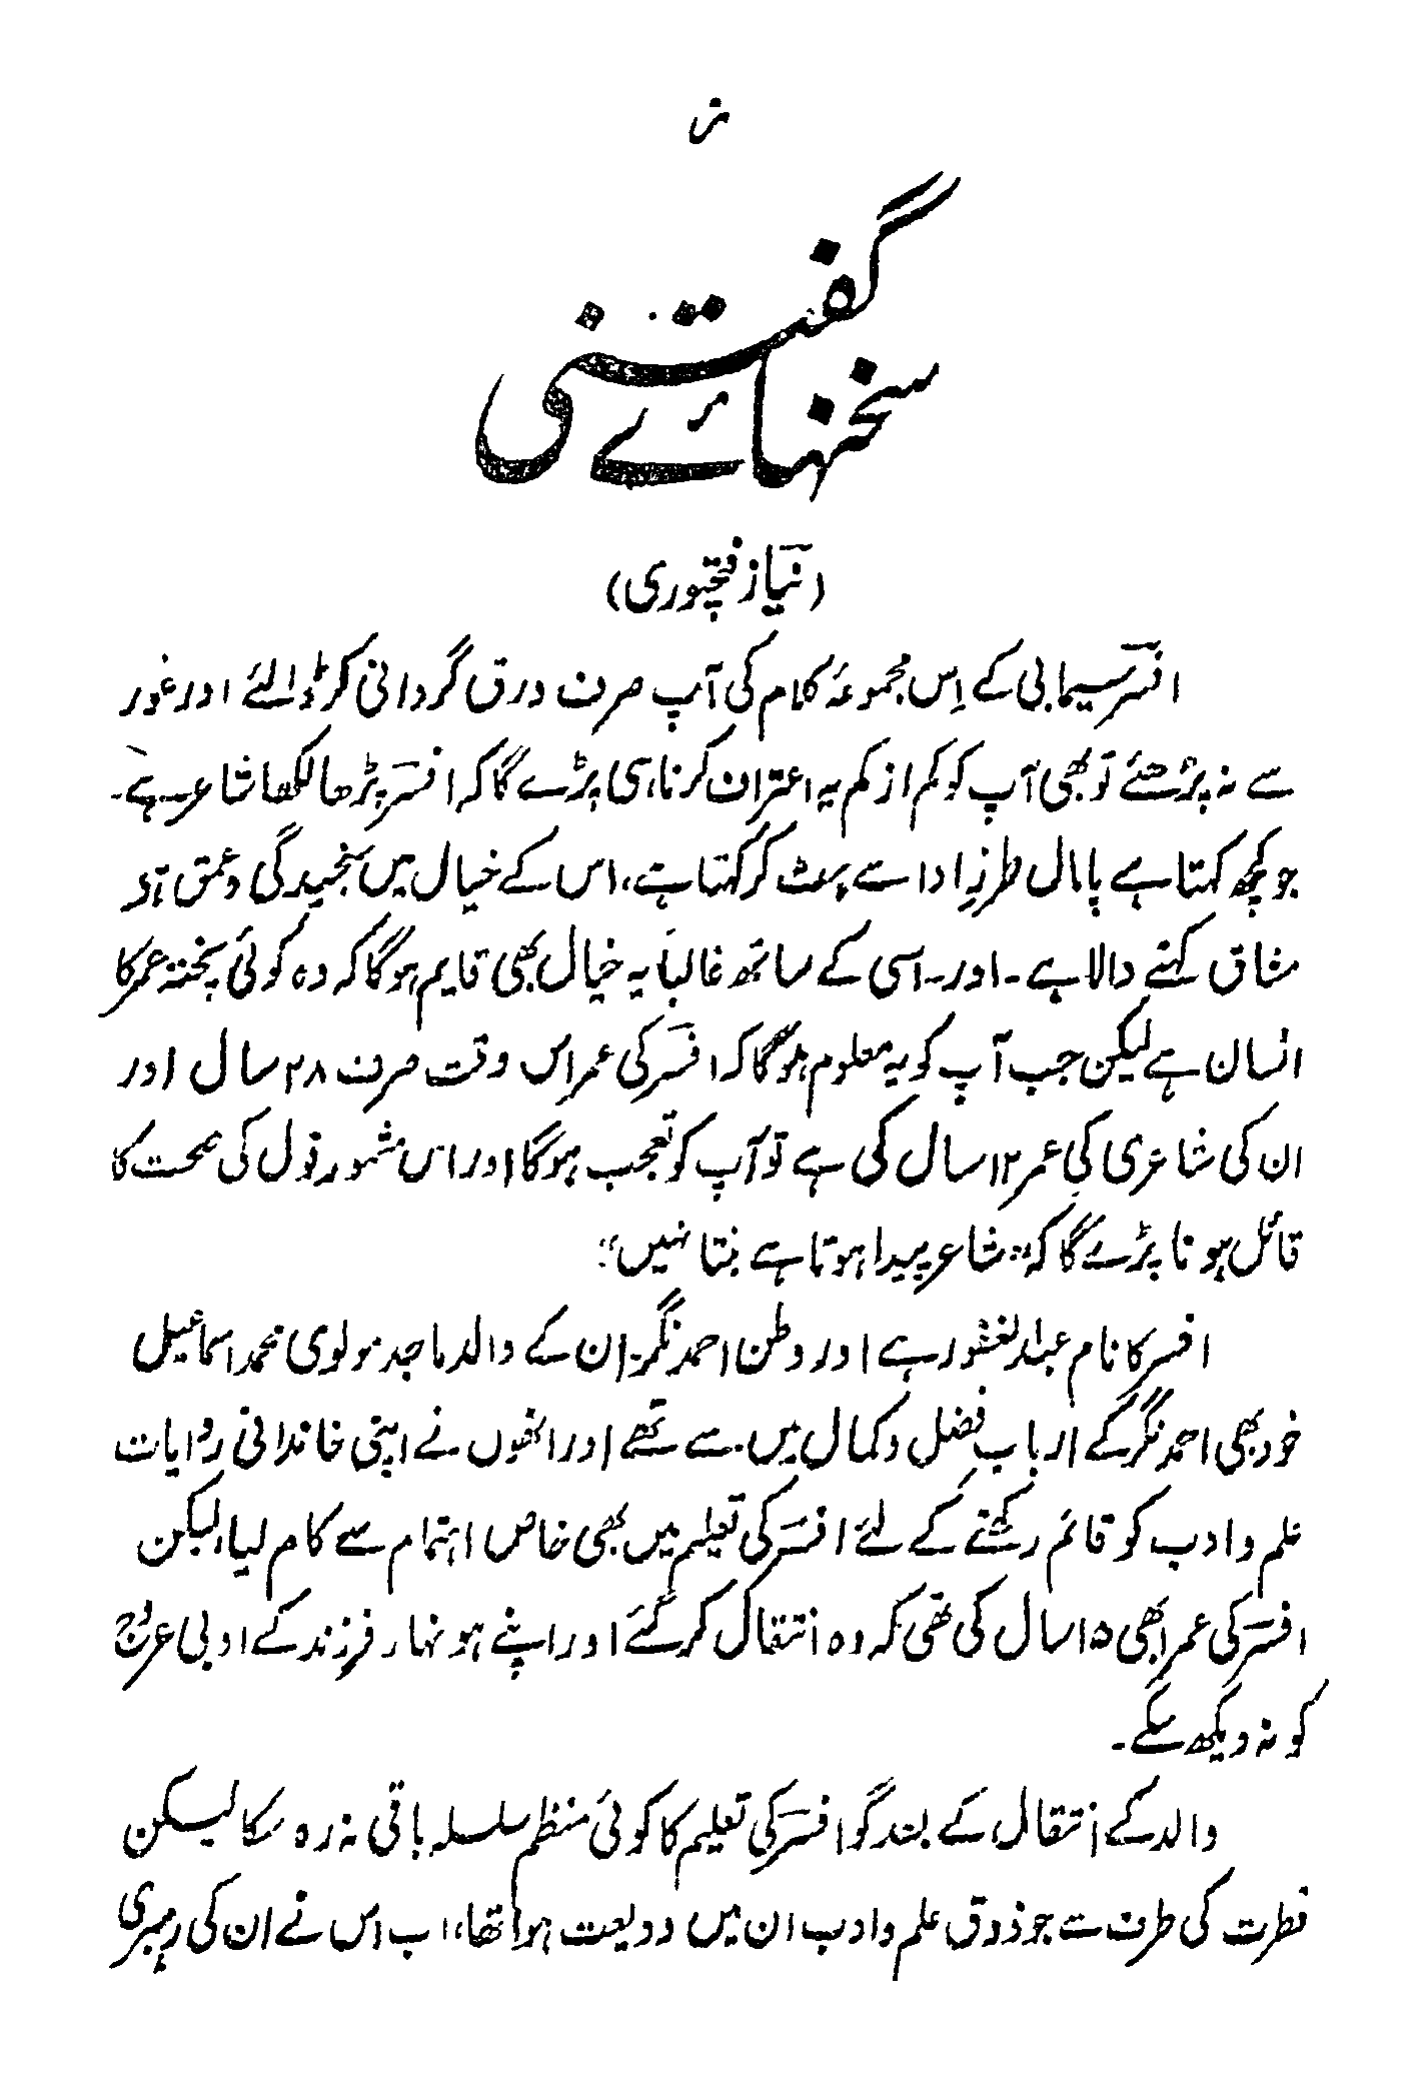 ز
سخنہائے گفتنی
(نیاز فتحپوری)
افسرؔ سیمابی کے اِس مجموعۂ کلام کی آپ صرف ورق گردانی کر ڈالئے اور غور
سے نہ پڑھئے تو بھی آپ کو کم از کم یہ اعتراف کرنا ہی پڑے گا کہ افسرؔ پڑھا لکھا شاعر ہے۔
جو کچھ کہتا ہے پامال طرزِ ادا سے ہٹ کر کہتا ہے، اس کے خیال میں سنجیدگی و عمق ہے اور
مشاق کہنے والا ہے۔ اور۔ اسی کے ساتھ غالباً یہ خیال بھی قایم ہوگا کہ وہ کوئی پختہ عمر کا
انسان ہے لیکن جب آپ کو یہ معلوم ہوگا کہ افسرؔ کی عمر اس وقت صرف ۲۸ سال اور
ان کی شاعری کی عمر ۱۲ سال کی ہے تو آپ کو تعجب ہوگا اور اس مشہور قول کی صحت کا
قائل ہونا پڑے گا کہ "شاعر پیدا ہوتا ہے بنتا نہیں"۔
افسر کا نام عبدالغفور ہے اور وطن احمد نگر۔ ان کے والد ماجد مولوی محمد اسماعیل
خود بھی احمد نگر کے اربابِ فضل و کمال میں سے تھے اور انھوں نے اپنی خاندانی روایات
علم و ادب کو قائم رکھنے کے لئے افسرؔ کی تعلیم میں بھی خاص اہتمام سے کام لیا، لیکن
افسرؔ کی عمر ابھی ۱۵ سال کی تھی کہ وہ انتقال کر گئے اور اپنے ہونہار فرزند کے ادبی عروج
کو نہ دیکھ سکے۔
والد کے انتقال کے بعد گو افسرؔ کی تعلیم کا کوئی منظم سلسلہ باقی نہ رہ سکا لیکن
فطرت کی طرف سے جو ذوق علم و ادب ان میں ودیعت ہوا تھا، اب اس نے ان کی رہبری